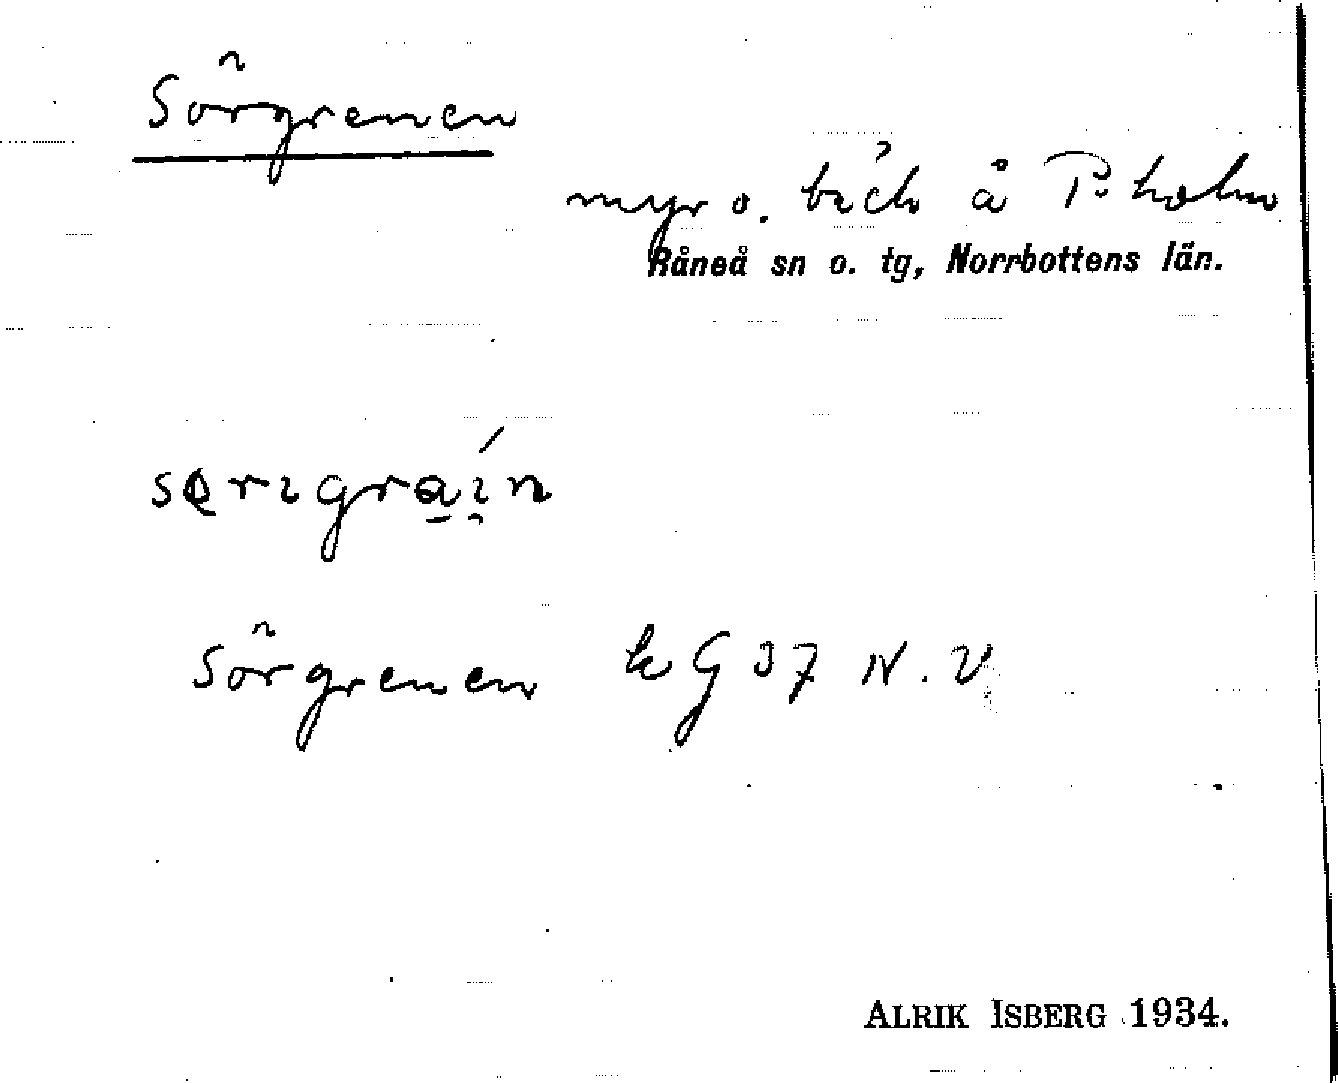 Sörgrenen
myr o. bäck å P:holm
Råneå sn o. tg, Norrbottens län.
Sörgrenen k G 37 N.V
ALRIK ISBERG 1934.